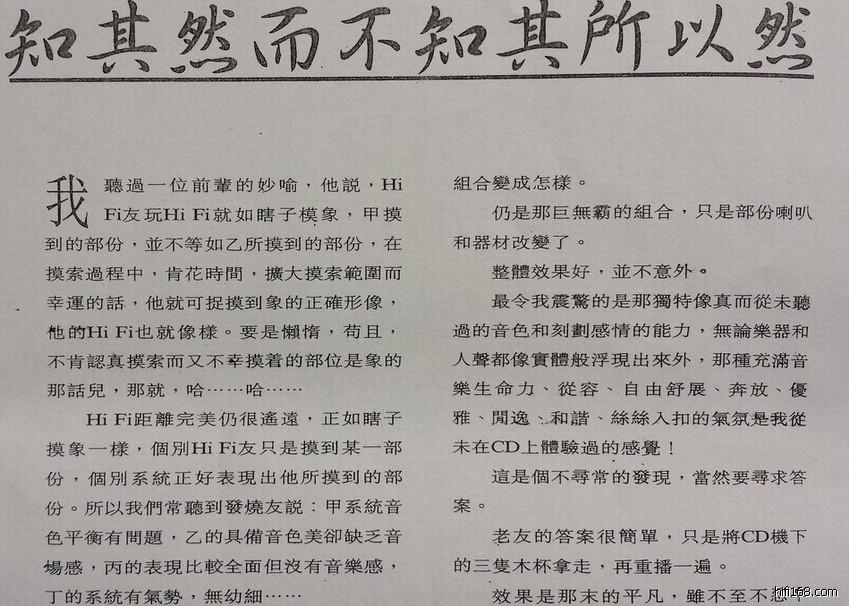 知其然而不知其所以然
我聽過一位前輩的妙喻，他説，Hi
Fi友玩Hi Fi就如瞎子模象，甲摸
到的部份，並不等如乙所摸到的部份，在
摸索過程中，肯花時間，擴大摸索範圍而
幸運的話，他就可捉摸到象的正確形像，
他的Hi Fi也就像樣。要是懶惰，苟且，
不肯認真摸索而又不幸摸着的部位是象的
那話兒，那就，哈……哈……
Hi Fi距離完美仍很遙遠，正如瞎子
摸象一樣，個別Hi Fi友只是摸到某一部
份，個別系統正好表現出他所摸到的部
份。所以我們常聽到發燒友説：甲系統音
色平衡有問題，乙的具備音色美卻缺乏音
場感，丙的表現比較全面但沒有音樂感，
丁的系統有氣勢，無幼細……
組合變成怎樣。
仍是那巨無霸的組合，只是部份喇叭
和器材改變了。
整體效果好，並不意外。
最令我震驚的是那獨特像真而從未聽
過的音色和刻劃感情的能力，無論樂器和
人聲都像實體般浮現出來外，那種充滿音
樂生命力、從容、自由舒展、奔放、優
雅、閒逸、和諧、絲絲入扣的氣氛是我從
未在CD上體驗過的感覺！
這是個不尋常的發現，當然要尋求答
案。
老友的答案很簡單，只是將CD機下
的三隻木杯拿走，再重播一遍。
效果是那末的平凡，雖不至不忍
hifi168.com